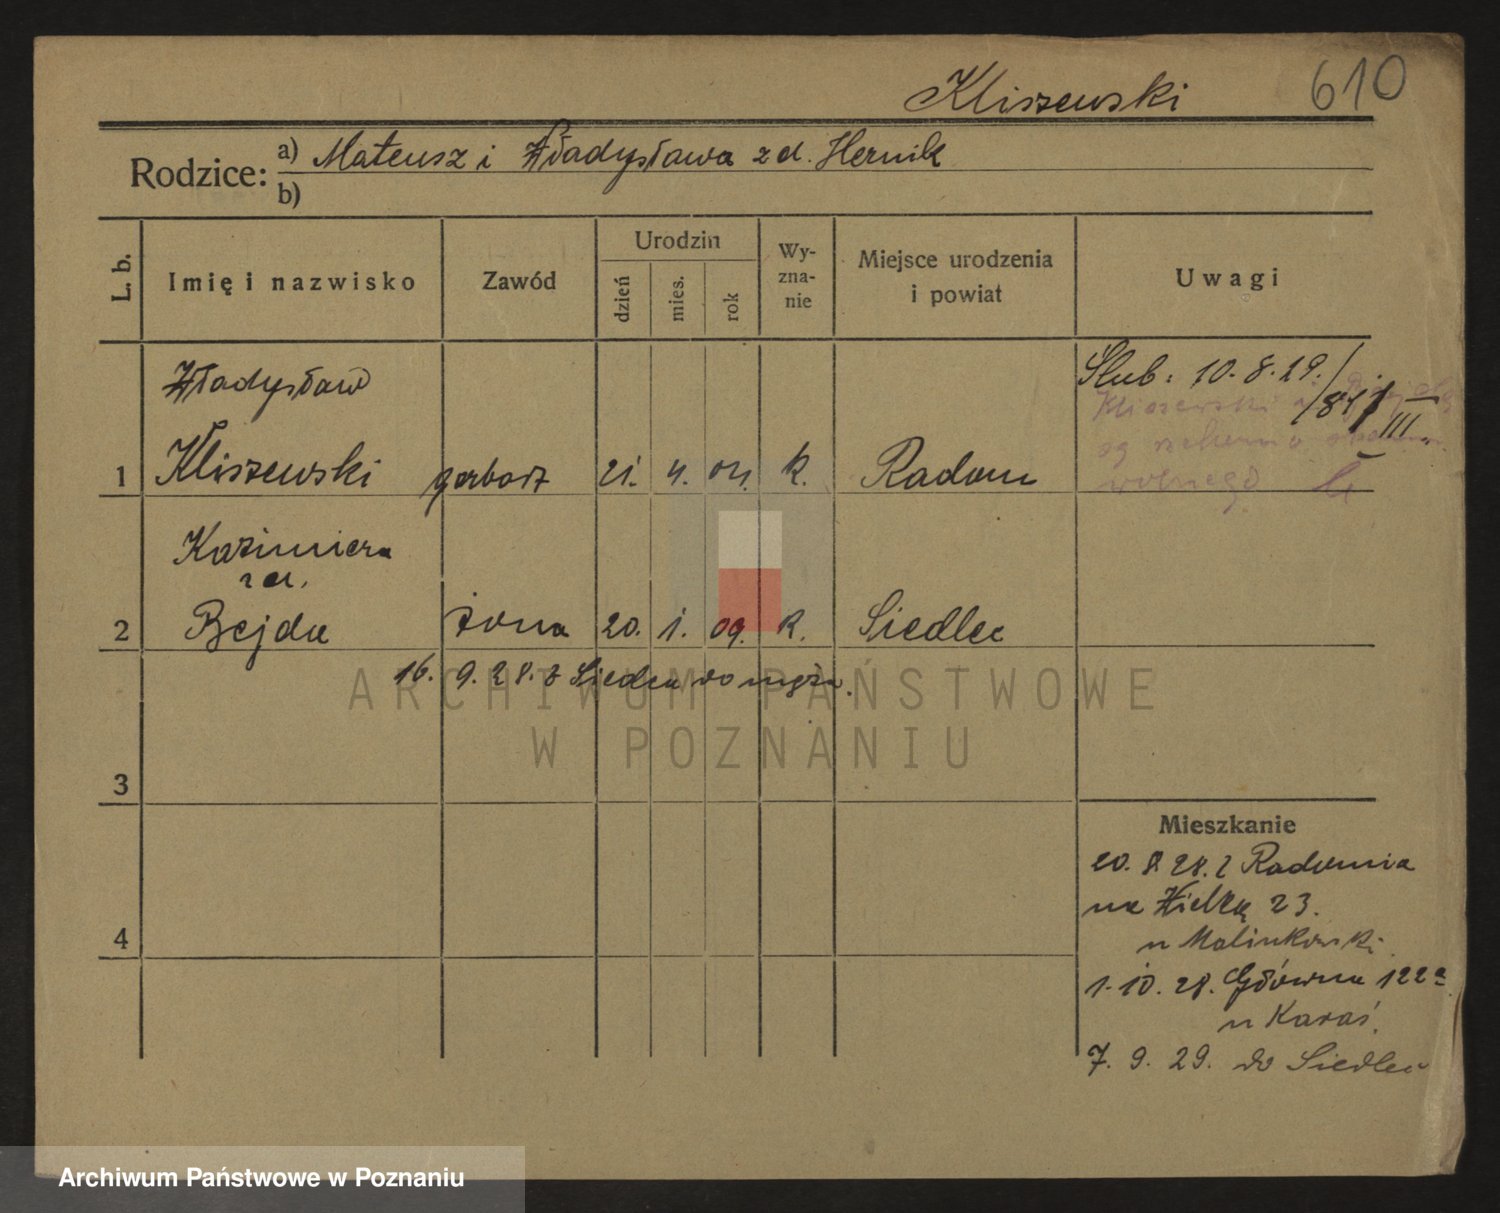 Kliszewski 610
Rodzice: a) Mateusz i Władysława zd. Hernik
b)
L. b. Imię i nazwisko Zawód Urodzin dzień mies. rok Wyznanie Miejsce urodzenia i powiat Uwagi
Władysław
Ślub: 10. 8. 29./
Kliszewski
III
1 Kliszewski garbarz 21. 4. 04. k. Radom
wolnego
Kazimiera
zd.
2 Bejda żona 20. 1. 09. k. Siedlec
16. 9. 28. z Siedlca do męża.
3
4
Mieszkanie
20. 8. 28. z Radomia
na Wielką 23.
u Malinkowski
1. 10. 28. Główna 122a
u Karaś.
7. 9. 29. do Siedlec
ARCHIWUM PAŃSTWOWE
W POZNANIU
Archiwum Państwowe w Poznaniu